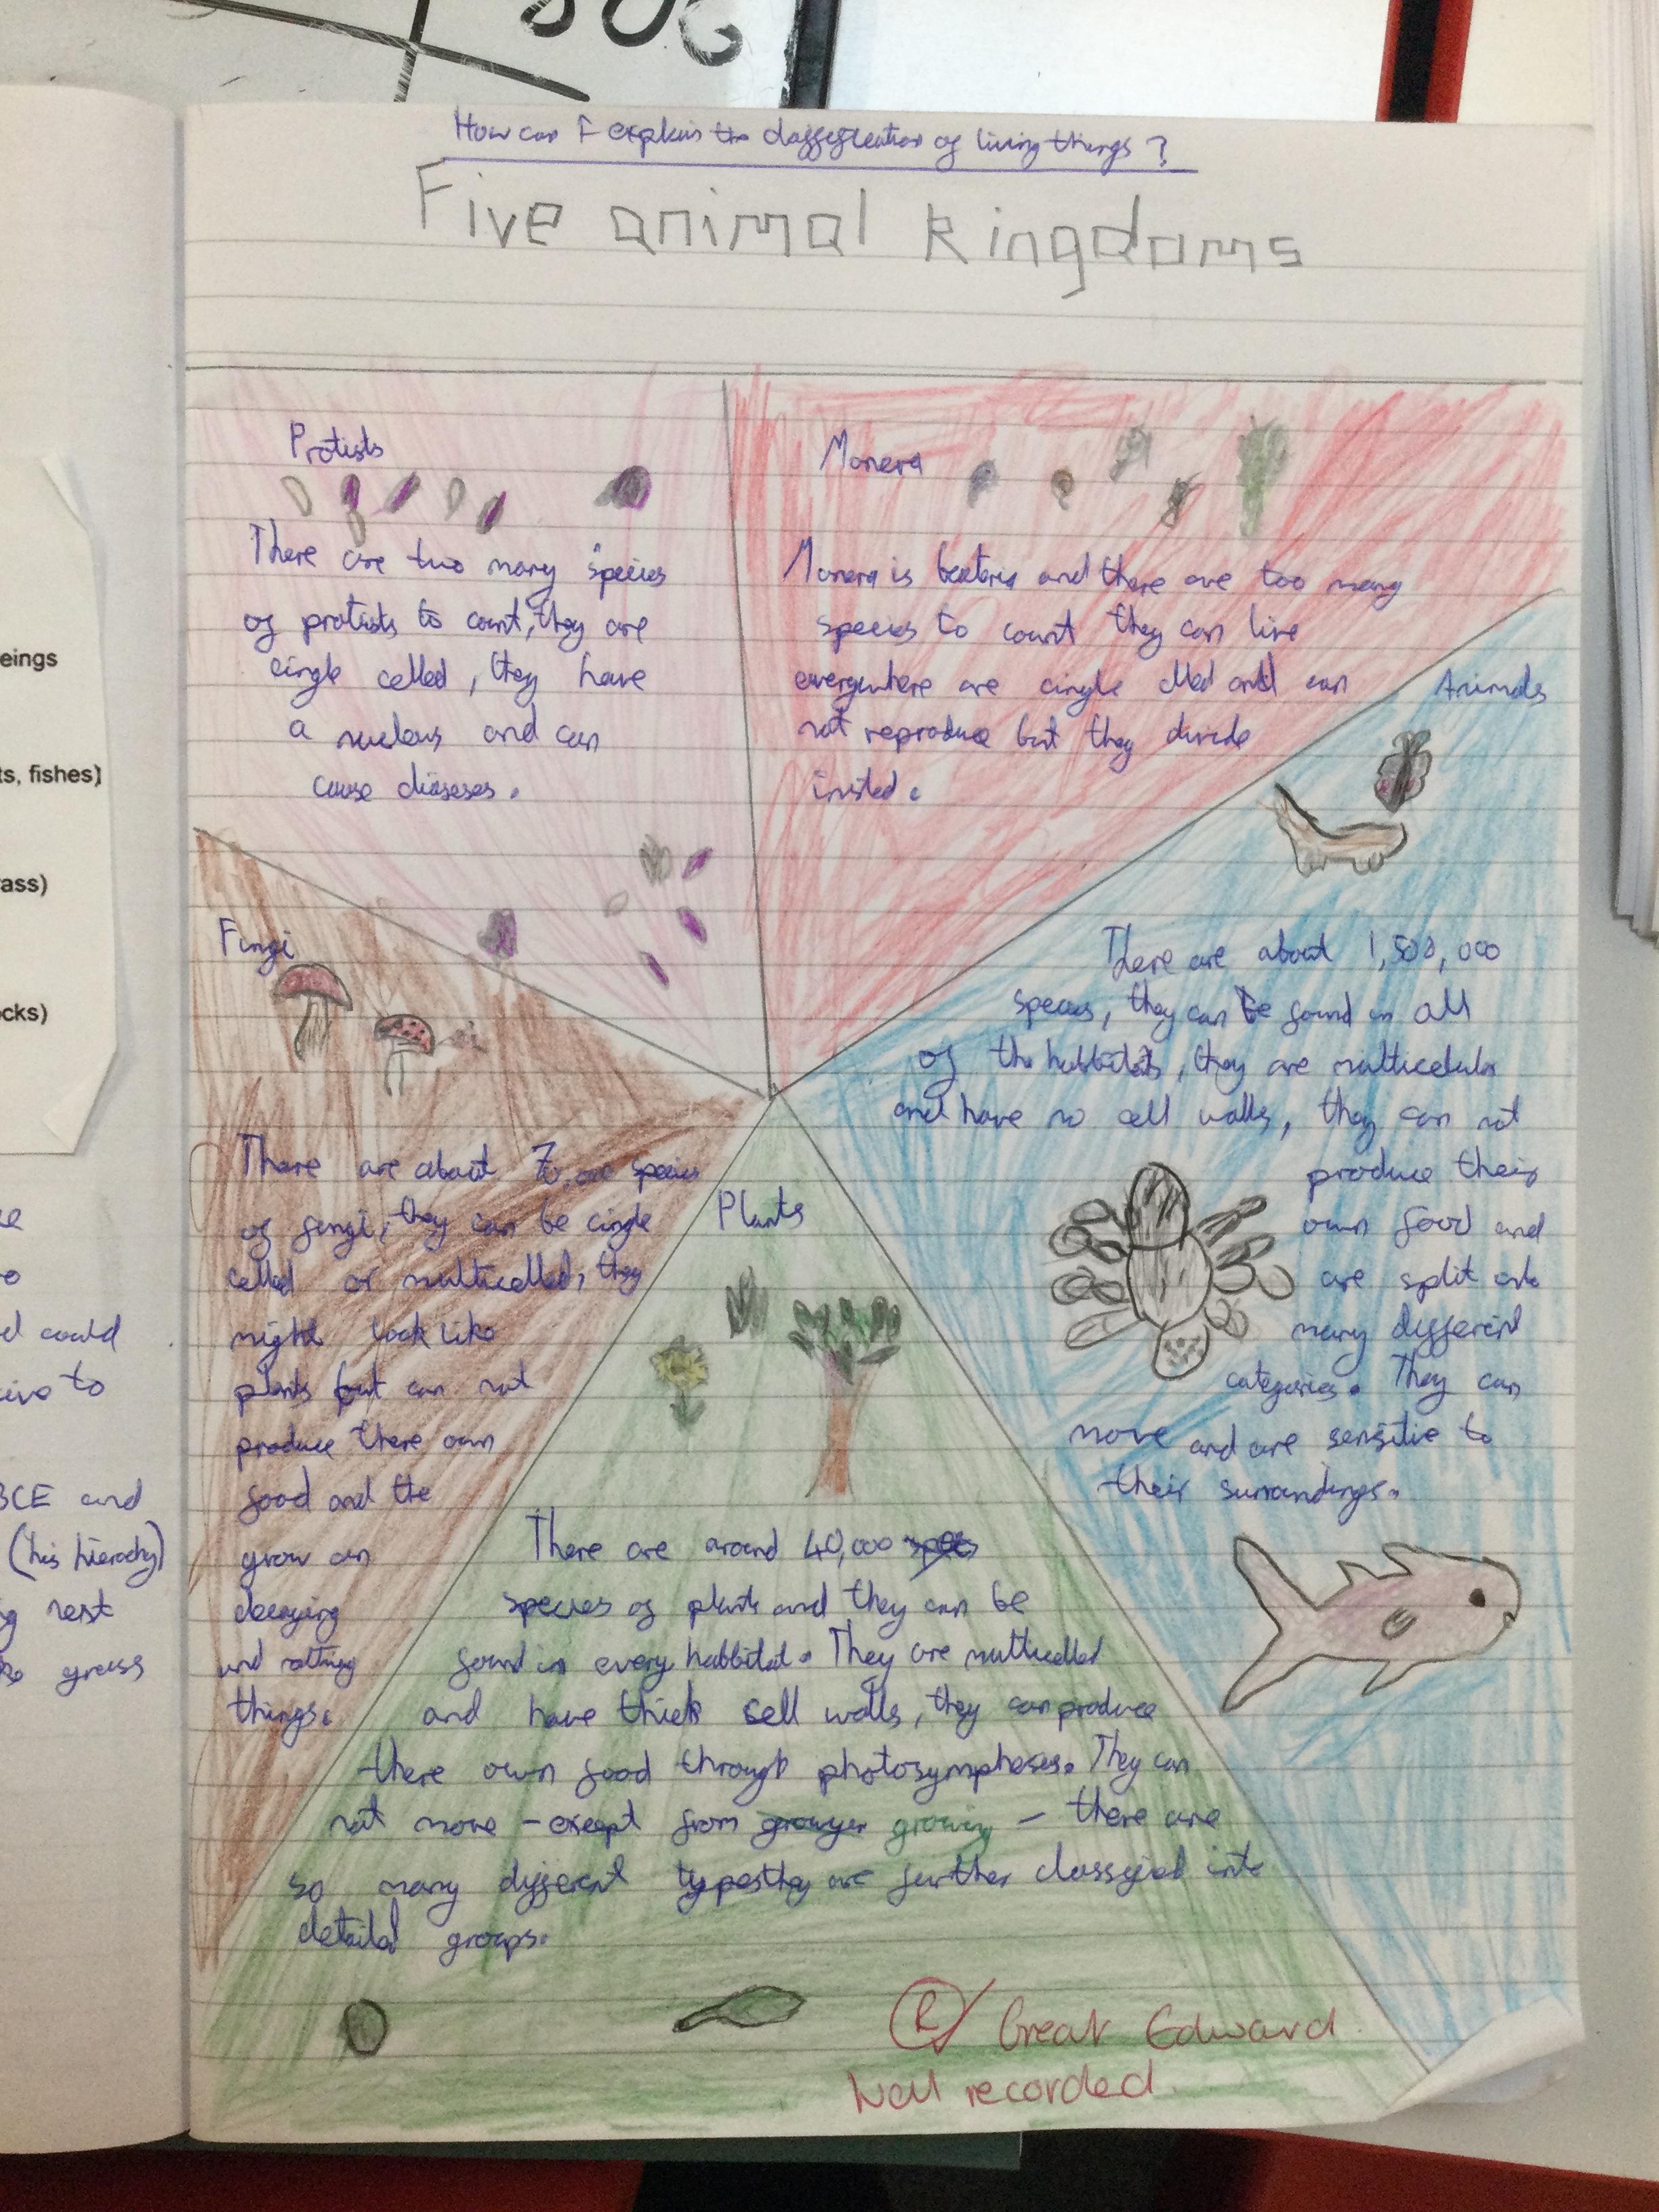 How can I explain the classification of living things?
Five animal kingdoms
Protists
There are two many species
of protists to count, they are
cingle celled, they have
a nucleus and can
cause diseases.
Monera
Monera is bacteria and there are too many
species to count they can live
everywhere are cingle clled and can
not reproduce but they divide
insted.
Animals
There are about 1,500,000
species, they can be found in all
of the habbitats, they are multicelular
and have no cell walls, they can not
produce their
own food and
are split into
many different
categories. They can
move and are sensitive to
their surroundings.
Fungi
There are about 70,000 species
of fungi, they can be cingle
celled or multicelled, they
might look like
plants but can not
produce there own
food and the
grow on
decaying
and rotting
things.
Plants
There are around 40,000
species of plants and they can be
found in every habbitat. They are multicelled
and have thick sell walls, they can produce
there own food through photosympheses. They can
not move - except from growing - there are
so many different types they are further classified into
detailed groups.
R Great Edward
Well recorded.
eings
ts, fishes)
rass)
cks)
d could
to
BCE and
(his hierachy)
rest
grass